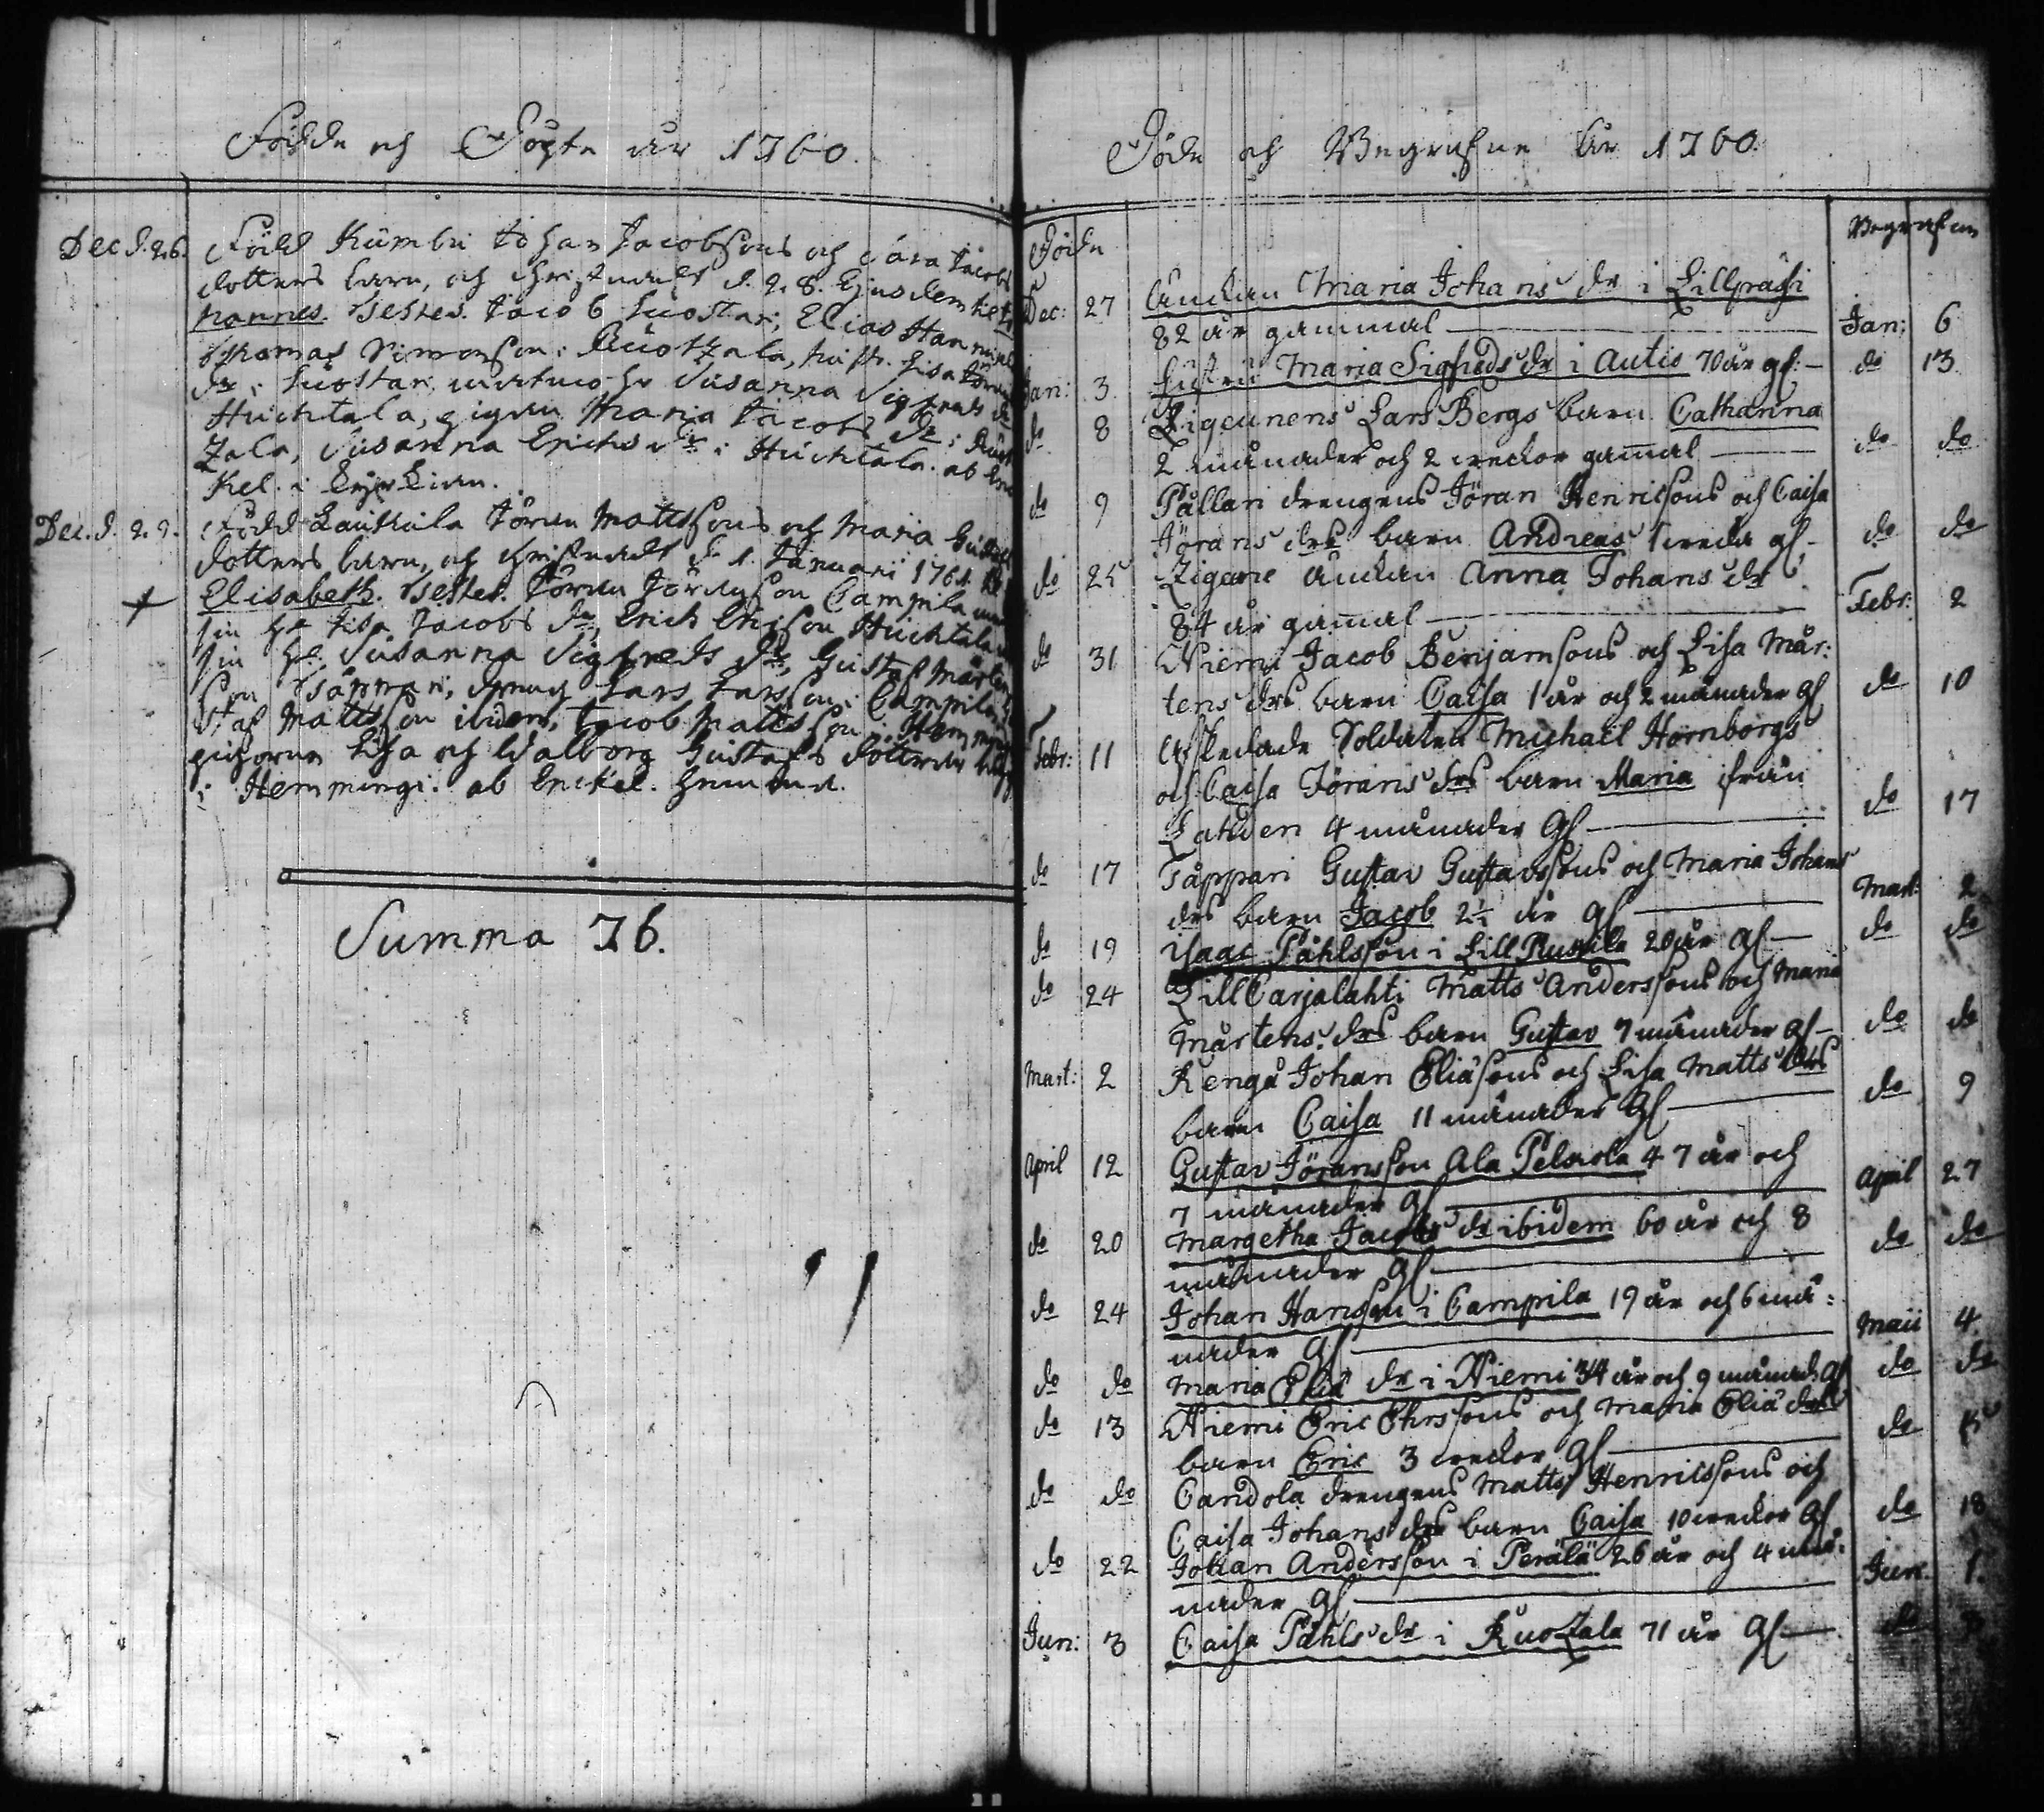 Födde och Döpte år 1760.
Dec. d. 26. Född Kumbu Johan Jacobssons och Sara Jacobs
dotters barn, och christnades d. 28. Ejusdem
Hannes. Testes. Jacob Suostari, Elias
Thomas Simonsson i Ruotzala, hustr. Lisa
dr i Suostari Susanna Sigfrids dr
Huichtala, pigan Maria Jacobs dr i
Zala, Susanna Erichs dr i Huichtala. ab
Kel. i kyrkian.
Dec. d. 29. Född Lauttila Jöran Mattssons och Maria
dotters barn, och christnades d. 1. Januarii 1761.
Elisabeth. Testes. Jöran Jöransson Campila
sin h. Lisa Jacobs dr, Erich Ericsson Huichtala
sin h. Susanna Sigfreds dr, Gustaf Mårten
son Tåppari, dreng Lars Larsson i Campila,
staf Mattsson ibidem, Jacob Mattsson i Hemmingi
pigorna Lisa och Walborg Gustafs döttrar
i Hemmingi. ab Enckel. hemma.
Summa 76.
Döde och Begrafne År 1760.
Döde
Begrafne
Dec: 27 Änckan Maria Johans dr i Lillpräsi
82 år gammal Jan: 6
Jan: 3 Hustru Maria Sigfreds dr i Autio 70 år gl. do 13
do 8 Zigeunens Lars Bergs barn Catharina
2 månader och 2 weckor gamal do do
do 9 Pållari drengens Jöran Henricsons och Caisa
Jörans drs barn Andreas 1 wecka gl. do do
do 25 Zigare änckan Anna Johans dr
84 år gamal Febr: 2
do 31 Niemi Jacob Benjamsons och Lisa Mår:
tens drs barn Caisa 1 år och 2 månader gl do 10
Febr: 11 Afskedade Soldaten Michael Hornborgs
och Caisa Jörans drs barn Maria ifrån
Lahden 4 månader gl do 17
do 17 Tåppari Gustav Gustavssons och Maria Johans
drs barn Jacob 2½ år gl Mart: 2
do 19 Isaac Påhlsson i Lill Ruskila 20 år gl do do
do 24 Lill Carjalahti Matts Anderssons och Maria
Mårtens drs barn Gustav 7 månader gl do do
Mart: 2 Kengä Johan Eliäsons och Lisa Matts drs
barn Caisa 11 månader gl do 9
April 12 Gustav Jöransson Ala Pelkola 47 år och
7 månader gl April 27
do 20 Margetha Jacobs dr ibidem 60 år och 8
månader gl do do
do 24 Johan Hansson i Campila 19 år och 6 må:
nader gl Maii 4
do do Maria Eliä dr i Niemi 34 år och 9 månad. gl do do
do 13 Niemi Eric Ehrssons och Maria Eliä drs
barn Eric 3 weckor gl do
do do Candola drengens Matts Henricssons och
Caisa Johans drs barn Caisa 10 weckor gl do 18
do 22 Johan Andersson i Perälä 26 år och 4 må:
nader gl Jun. 1.
Jun: 3 Caisa Påhls dr i Ruotzala 71 år gl do